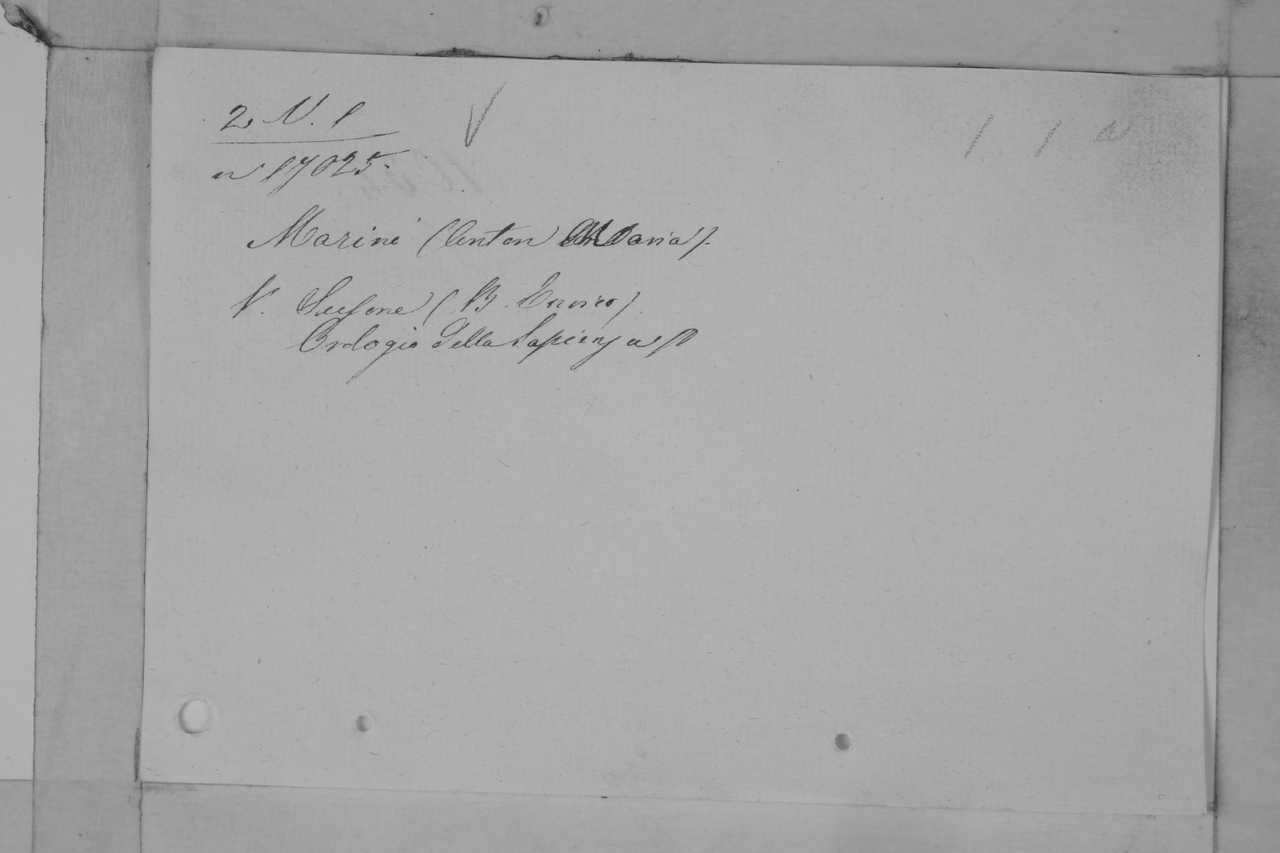 2. N. 1
n 17025.
Marini (Anton Maria).
V. Susone (B. Enrico).
Orologio della Sapienza